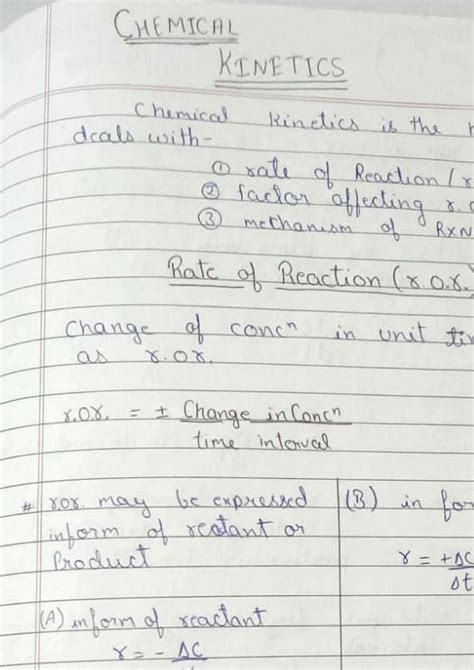 CHEMICAL
KINETICS
Chemical kinetics is the
deals with-
① rate of Reaction (r
② factor affecting r.o
③ mechanism of RXN
Rate of Reaction (r.o.r.
Change of concⁿ in unit tim
as r.o.r.
r.or. = ± Change in Concⁿ
time interval
# ror. may be expressed
inform of reatant or
Product
(A) inform of reactant
r = - ΔC
Δt
(B) in for
r = +ΔC
Δt